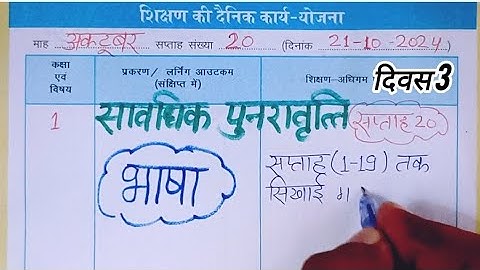 शिक्षण की दैनिक कार्य-योजना
माह अक्टूबर सप्ताह संख्या 20 (दिनांक 21-10-2024)
दिवस 3
कक्षा एवं विषय
प्रकरण/ लर्निंग आउटकम (संक्षिप्त में)
शिक्षण-अधिगम
1
सावधिक पुनरावृत्ति
सप्ताह 20
भाषा
सप्ताह (1-19) तक
सिखाई ग